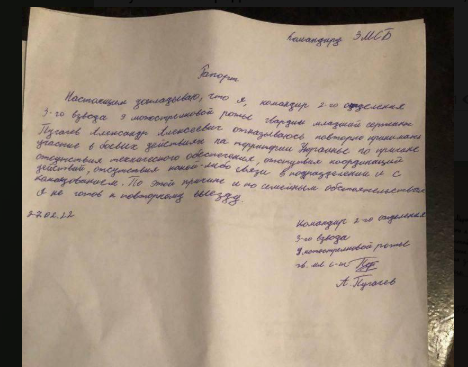 командиру 3МСБ
Рапорт
Настоящим докладываю, что я, командир 2-го отделения
3-го взвода 9 мотострелковой роты гвардии младший сержант
Пугачев Александр Алексеевич отказываюсь повторно принимать
участие в боевых действиях на территории Украины по причине
отсутствия технического обеспечения, отсутствия координаций
действий, отсутствия какой-либо связи в подразделении и с
командованием. По этой причине и по семейным обстоятельствам
я не готов к повторному выезду.
22
Командир 2-го отделения
3-го взвода
9 мотострелковой роты
гв. мл. с-т
А. Пугачев